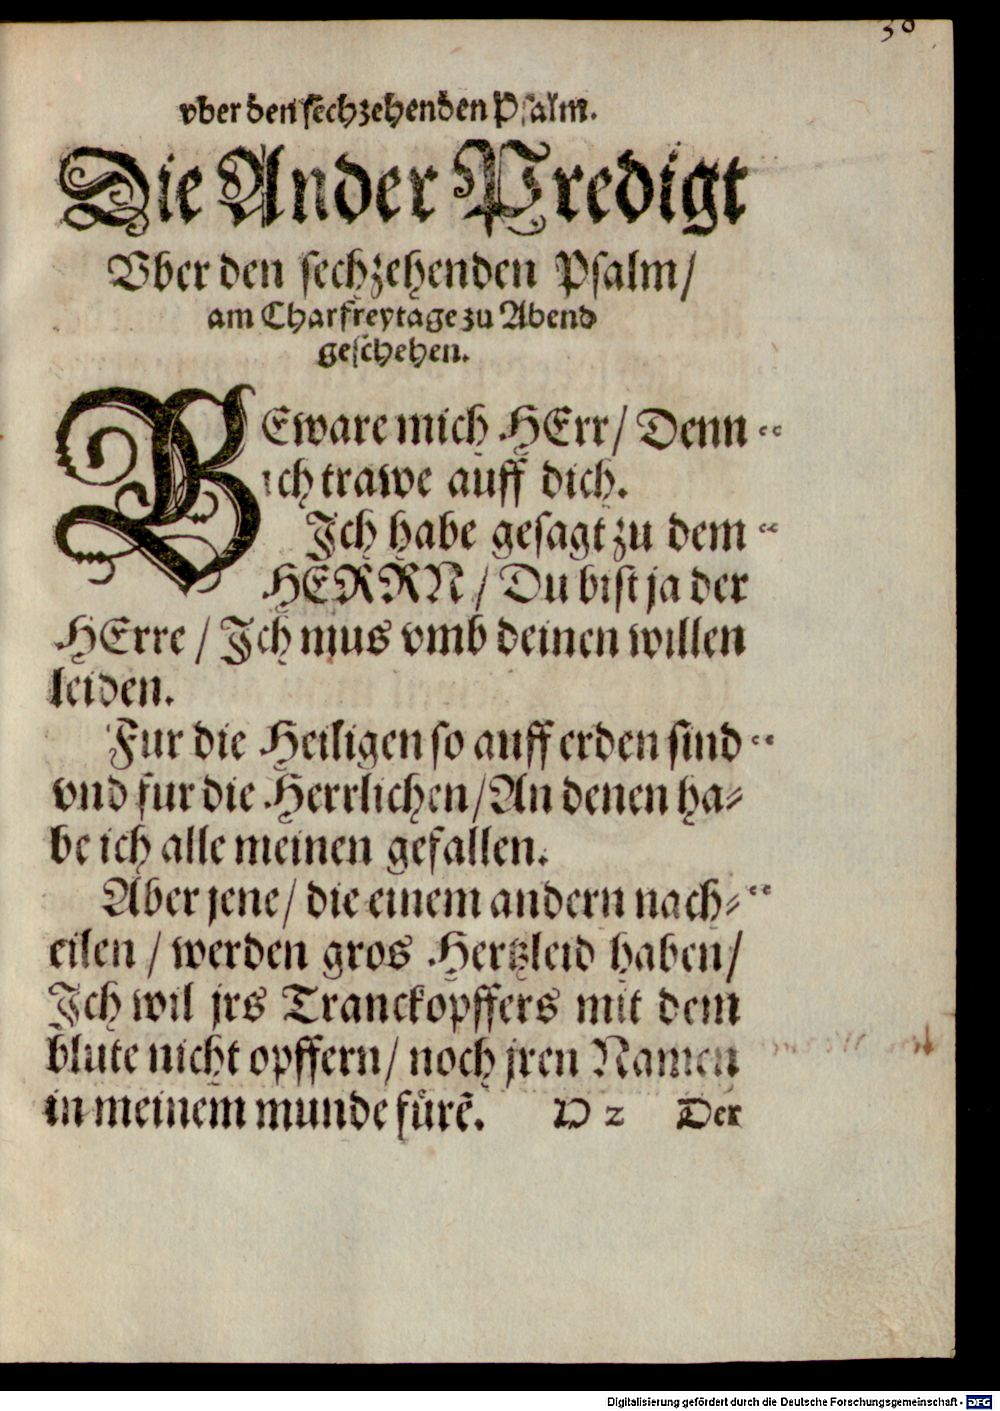 30
vber den sechzehenden Psalm.
Die Ander Predigt
Vber den sechzehenden Psalm/
am Charfreytage zu Abend
geschehen.
BEware mich HErr/ Denn "
ich trawe auff dich.
Ich habe gesagt zu dem "
HERRN/ Du bist ja der
HErre/ Ich mus vmb deinen willen
leiden.
Fur die Heiligen so auff erden sind "
vnd fur die Herrlichen/ An denen ha⸗
be ich alle meinen gefallen.
Aber jene/ die einem andern nach⸗ "
eilen/ werden gros Hertzleid haben/
Ich wil jrs Tranckopffers mit dem
blute nicht opffern/ noch jren Namen
in meinem munde fürẽ. D 2 Der
Digitalisierung gefördert durch die Deutsche Forschungsgemeinschaft - DFG